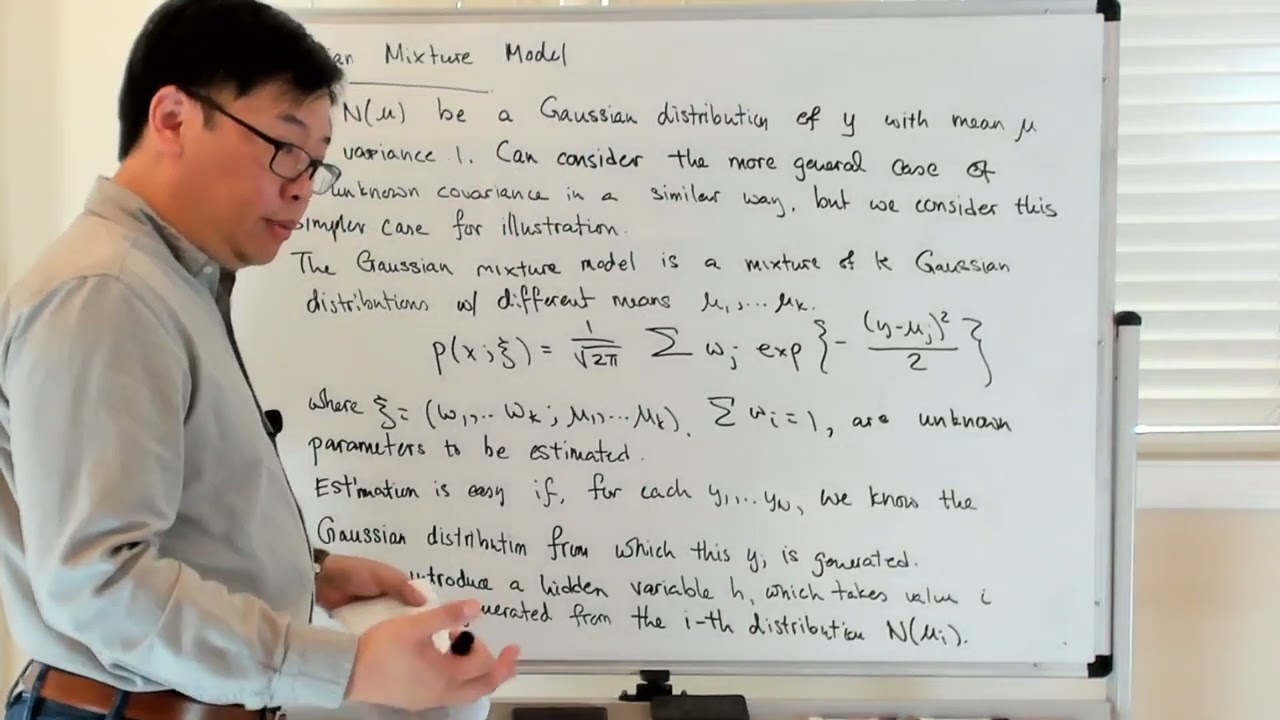 an Mixture Model
N(μ) be a Gaussian distribution of y with mean μ
variance 1. Can consider the more general case of
unknown covariance in a similar way, but we consider this
simpler case for illustration.
The Gaussian mixture model is a mixture of k Gaussian
distributions w/ different means μ₁,... μₖ.
p(x;ξ) = 1/√2π Σ wⱼ exp {- (y-μⱼ)²/2}
where ξ = (w₁,... wₖ; μ₁,... μₖ), Σ wᵢ = 1, are unknown
parameters to be estimated.
Estimation is easy if, for each y₁,... y_N, we know the
Gaussian distribution from which this yⱼ is generated.
introduce a hidden variable h, which takes value i
generated from the i-th distribution N(μᵢ).